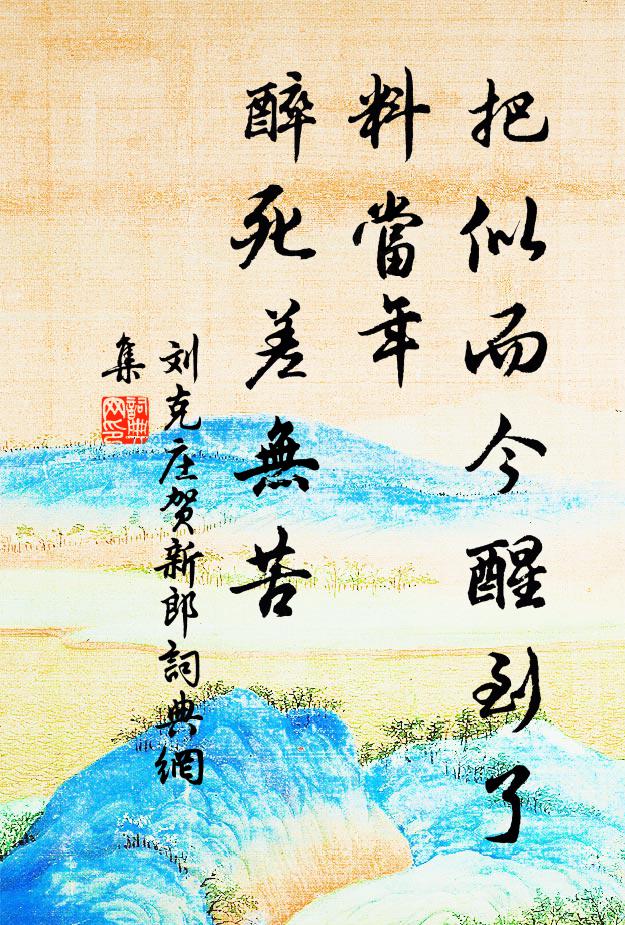 把似而今醒到了
料當年
醉死差無苦
刘克庄贺新郎詞典網
集
詞典
网印